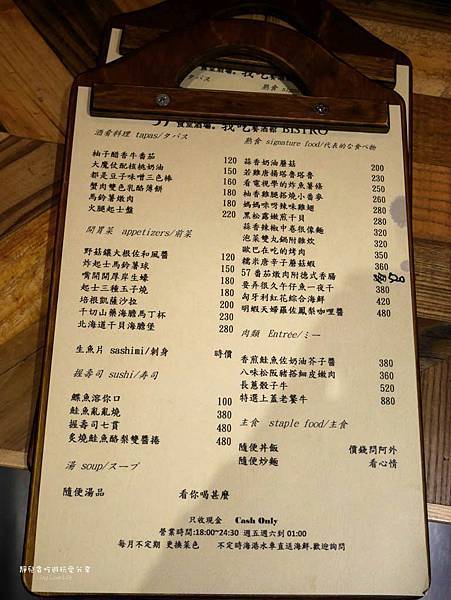 我吃餐酒館 BISTRO
酒肴料理 tapas/タパス
柚子醋香牛番茄 120
大魔仗配核桃奶油 150
都是豆子味噌三色棒 160
蟹肉雙色乳酪薄餅 180
馬鈴薯燉肉 180
火腿起士盤 220
開胃菜 appetizers/前菜
野菇鑲大根佐和風醬 120
炸起士馬鈴薯球 150
嘴開開厚岸生蠔 180
起士三種五子燒 180
培根凱薩沙拉 200
千切山藥海膽馬丁杯 230
北海道干貝海膽堡 280
生魚片 sashimi/刺身 時價
握壽司 sushi/寿司
鰈魚溶你口 100
鮭魚亂亂燒 380
握壽司七貫 480
炙燒鮭魚酪梨雙醬捲 480
湯 soup/スープ
隨便湯品 看你喝甚麼
熟食 signature food/代表的な食べ物
蒜香奶油蘑菇 200
若雞唐揚塔魯塔魯 230
看電視學的炸魚薯條 250
柚香雞腿搭燒小番麥 260
媽媽咪呀辣味雞翅 260
黑松露嫩煎干貝 280
蒜香辣椒中卷很像麵 320
泡菜雙丸鍋附雜炊 320
歐巴在吃的烤肉 350
糯米唐辛子蘑菇蝦 360
57 番茄燉肉附德式香腸
要弄很久牛仔魚一夜干 380
匈牙利紅花綜合海鮮 420
明蝦天婦羅佐鳳梨咖哩醬 480
肉類 Entrée/ミー
香煎鮭魚佐奶油芥子醬 380
八味松阪豬搭細皮嫩肉 360
長蔥骰子牛 520
特選上蓋老饕牛 880
主食 staple food/主食
隨便丼飯 價錢問阿外
隨便炒麵 看心情
只收現金 Cash Only
營業時間:18:00~24:30 週五週六到 01:00
每月不定期 更換菜色 不定時海港水車直送海鮮.歡迎詢問